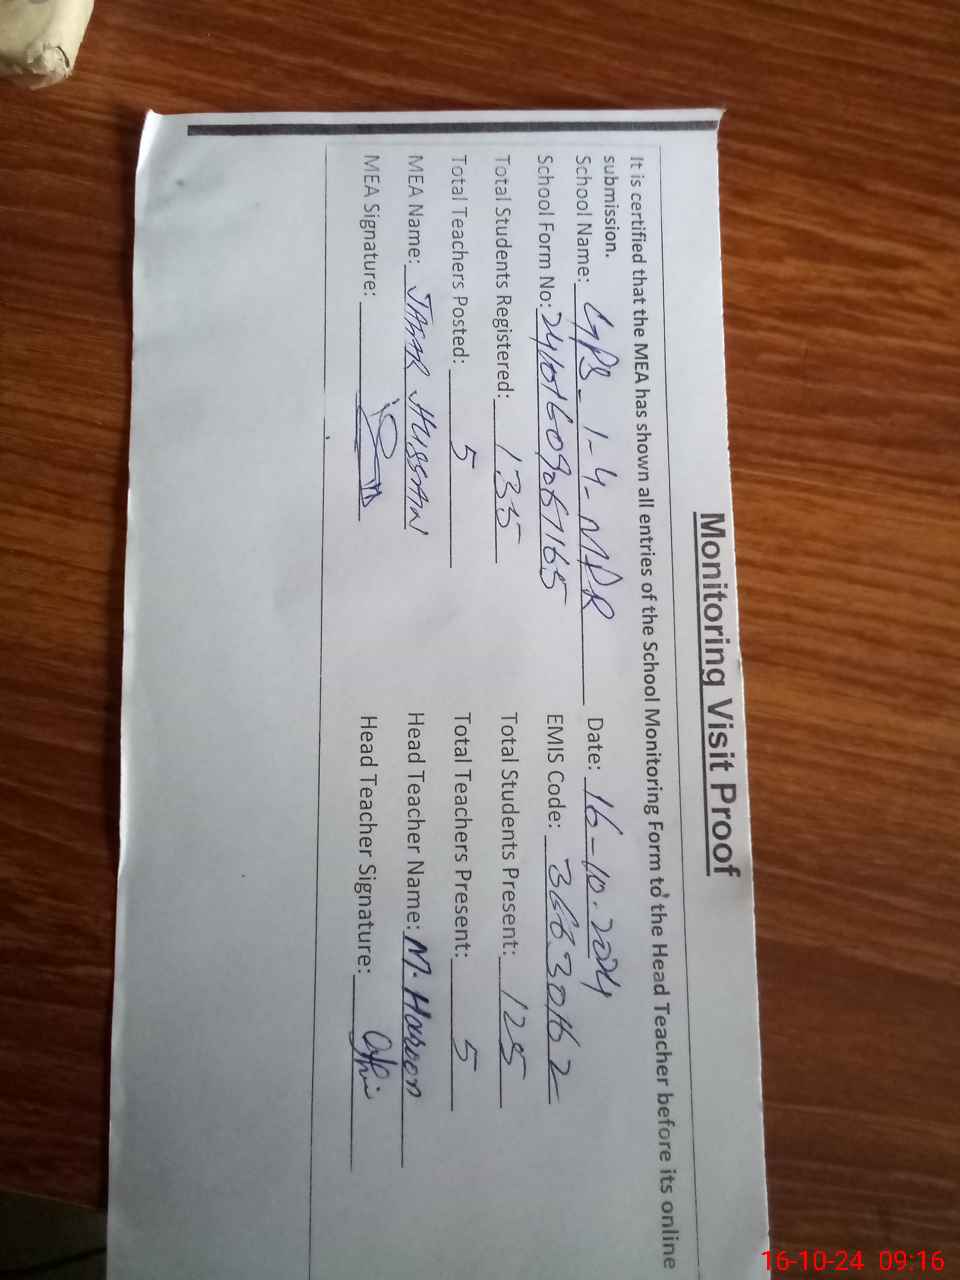 Monitoring Visit Proof
It is certified that the MEA has shown all entries of the School Monitoring Form to the Head Teacher before its online
submission.
School Name: GPS-1-4-MPR Date: 16-10-2024
School Form No: EMIS Code:
Total Students Registered: 135 Total Students Present: 125
Total Teachers Posted: 5 Total Teachers Present: 5
MEA Name: Head Teacher Name: M. Haroon
MEA Signature: Head Teacher Signature:
16-10-24 09:16